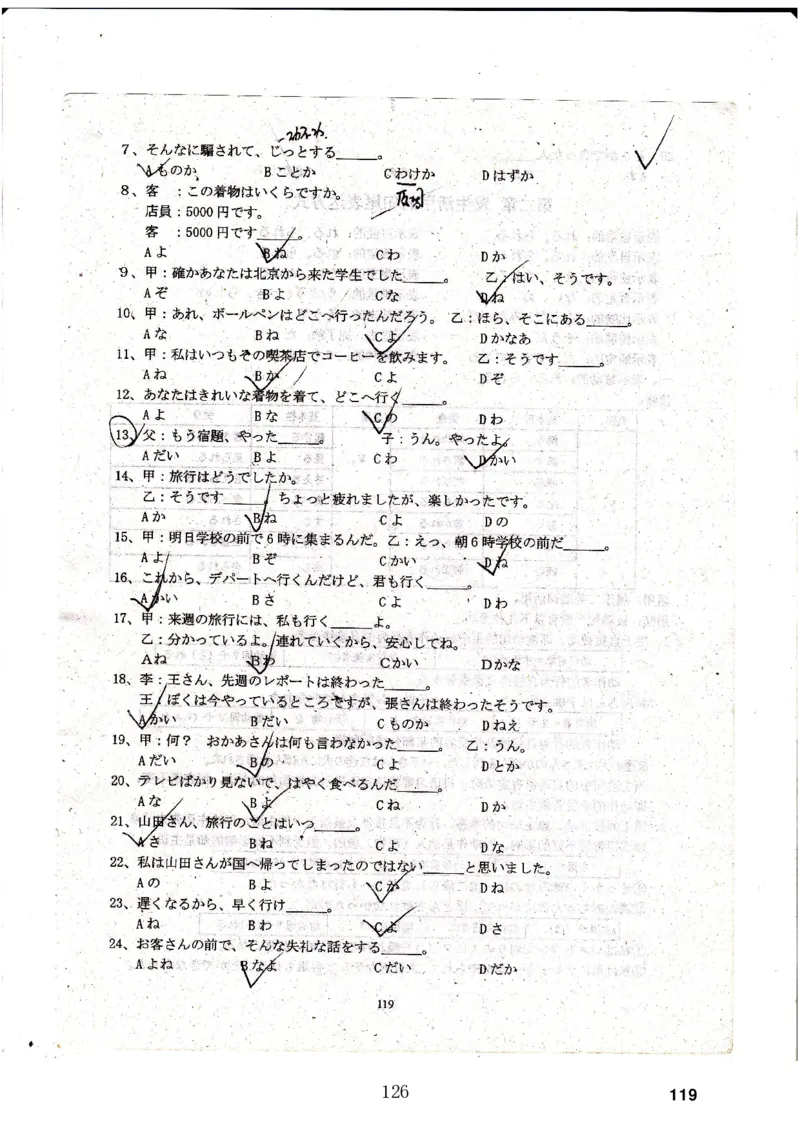 7、そんなに騙されて、じっとする____。
Aものか Bことか Cわけか Dはずか
反问
8、客 ：この着物はいくらですか。
店員：5000円です。
客 ：5000円です____。
Aよ Bね Cわ Dか
9、甲：確かあなたは北京から来た学生でした____。 乙：はい、そうです。
Aぞ Bよ Cな Dね
10、甲：あれ、ボールペンはどこへ行ったんだろう。 乙：ほら、そこにある____。
Aな Bね Cよ Dかなあ
11、甲：私はいつもその喫茶店でコーヒーを飲みます。 乙：そうです____。
Aね Bか Cよ Dぞ
12、あなたはきれいな着物を着て、どこへ行く____。
Aよ Bな Cの Dわ
13、父：もう宿題、やった____。 子：うん。やったよ。
Aだい Bよ Cわ Dかい
14、甲：旅行はどうでしたか。
乙：そうです____。ちょっと疲れましたが、楽しかったです。
Aか Bね Cよ Dの
15、甲：明日学校の前で6時に集まるんだ。乙：えっ、朝6時学校の前だ____。
Aよ Bぞ Cかい Dね
16、これから、デパートへ行くんだけど、君も行く____。
Aかい Bさ Cよ Dわ
17、甲：来週の旅行には、私も行く____よ。
乙：分かっているよ。連れていくから、安心してね。
Aね Bわ Cかい Dかな
18、李：王さん、先週のレポートは終わった____。
王：ぼくは今やっているところですが、張さんは終わったそうです。
Aかい Bだい Cものか Dねえ
19、甲：何？ おかあさんは何も言わなかった____。 乙：うん。
Aだい Bの Cよ Dとか
20、テレビばかり見ないで、はやく食べるんだ____。
Aな Bよ Cね Dか
21、山田さん、旅行のことはいつ____。
Aさ Bね Cよ Dな
22、私は山田さんが国へ帰ってしまったのではない____と思いました。
Aの Bよ Cか Dね
23、遅くなるから、早く行け____。
Aね Bわ Cよ Dさ
24、お客さんの前で、そんな失礼な話をする____。
Aよね Bなよ Cだい Dだか
119
126
119